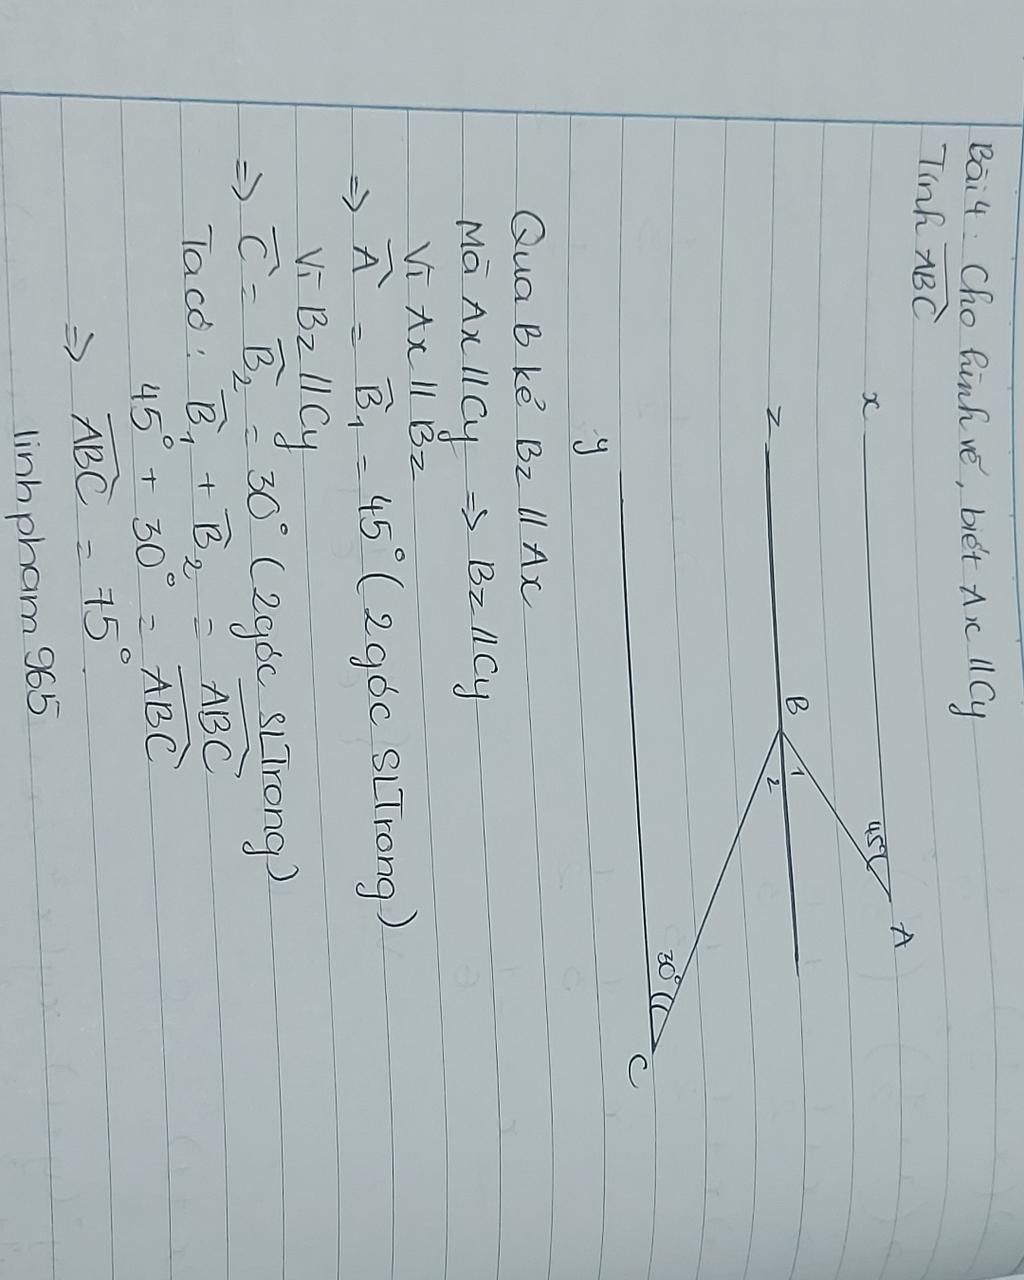 Bài 4. Cho hình vẽ, biết Ax // Cy
Tính ABC
x
45°
A
z
B
1
2
30°
y
C
Qua B kẻ Bz // Ax
Mà Ax // Cy => Bz // Cy
Vì Ax // Bz
=> A = B1 = 45° (2 góc SLTrong)
Vì Bz // Cy
=> C = B2 = 30° (2 góc SLTrong)
Ta có: B1 + B2 = ABC
45° + 30° = ABC
=> ABC = 75°
linhpham965